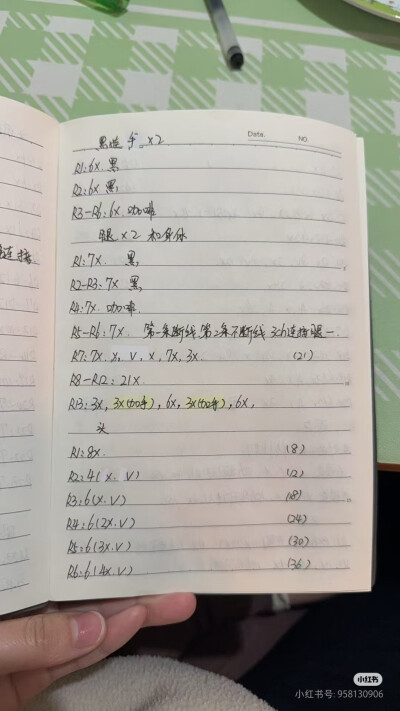 Date. NO.
手 x2
R1:6x 黑
R2:6x 黑
R3-R6:6x 咖啡
腿x2 和身体
R1:7x. 黑
R2-R3:7x 黑
R4:7x. 咖啡
R5-R6:7x. 第一条断线 第二条不断线 3ch连接腿一.
R7:7x. x, v, x, 7x, 3x. (21)
R8-R12:21x.
R13:3x, 3x(加手), 6x, 3x(加手), 6x,
头
R1:8x. (8)
R2:4(x. v) (12)
R3:6(x.v) (18)
R4:6(2x.v) (24)
R5:6(3x.v) (30)
R6:6(4x.v) (36)
连接
小红书
小红书号: 958130906